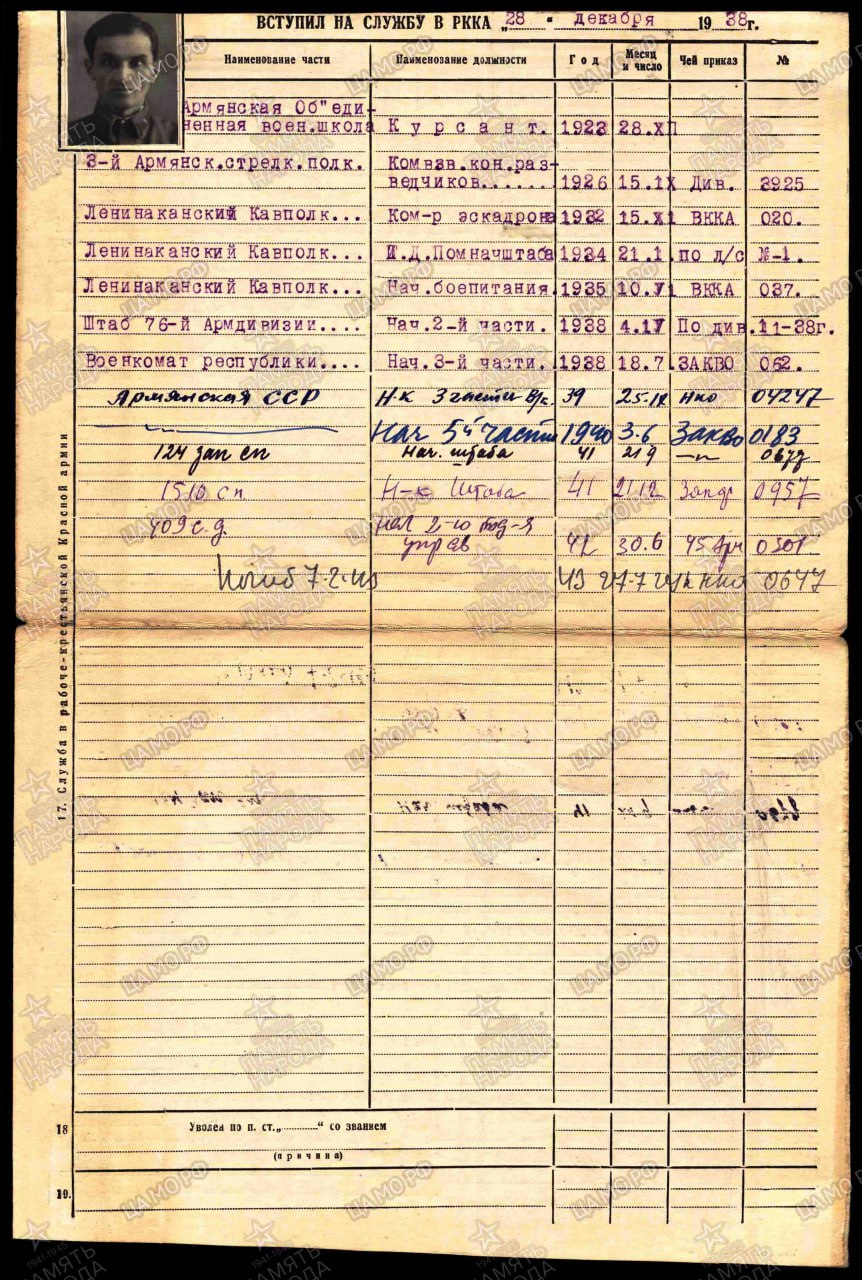 ВСТУПИЛ НА СЛУЖБУ В РККА „28 " декабря 1938г.
Наименование части Наименование должности Год Месяц и число Чей приказ №
Армянская Об"еди-
ненная воен.школа Курсант. 1923 28.XП
3-й Армянск.стрелк.полк. Комвзв.кон.раз-
ведчиков....... 1926 15.1X Див. 3925
Ленинаканский Кавполк... Ком-р эскадрона 1932 15.X1 ВККА 020.
Ленинаканский Кавполк... И.Д.Помначштаба 1934 21.1. по л/с №-1.
Ленинаканский Кавполк... Нач.боепитания. 1935 10.У1 ВККА 037.
Штаб 76-й Армдивизии.... Нач.2-й части. 1938 4.1У По див. 11-38г.
Военкомат республики.... Нач.3-й части. 1938 18.7. ЗАКВО 062.
Армянская ССР Н-к 3 части 39 25-IX Нко 04247
Нач 5й части 1940 3.6 Закво 0183
124 зап сп Нач. штаба 41 21 9 —"—
1510 сп Н-к Штаба 41 21.12 0957
409 с.д. нач 2-го
управ 42 30.6 45 Арм
Погиб 7.2.43 43 нко 0647
17. Служба в рабоче-крестьянской Красной армии
18 Уволен по п. ст.„..........“ со званием
(причина)
19.
ЦАМО.РФ
ПАМЯТЬ НАРОДА
1941-1945